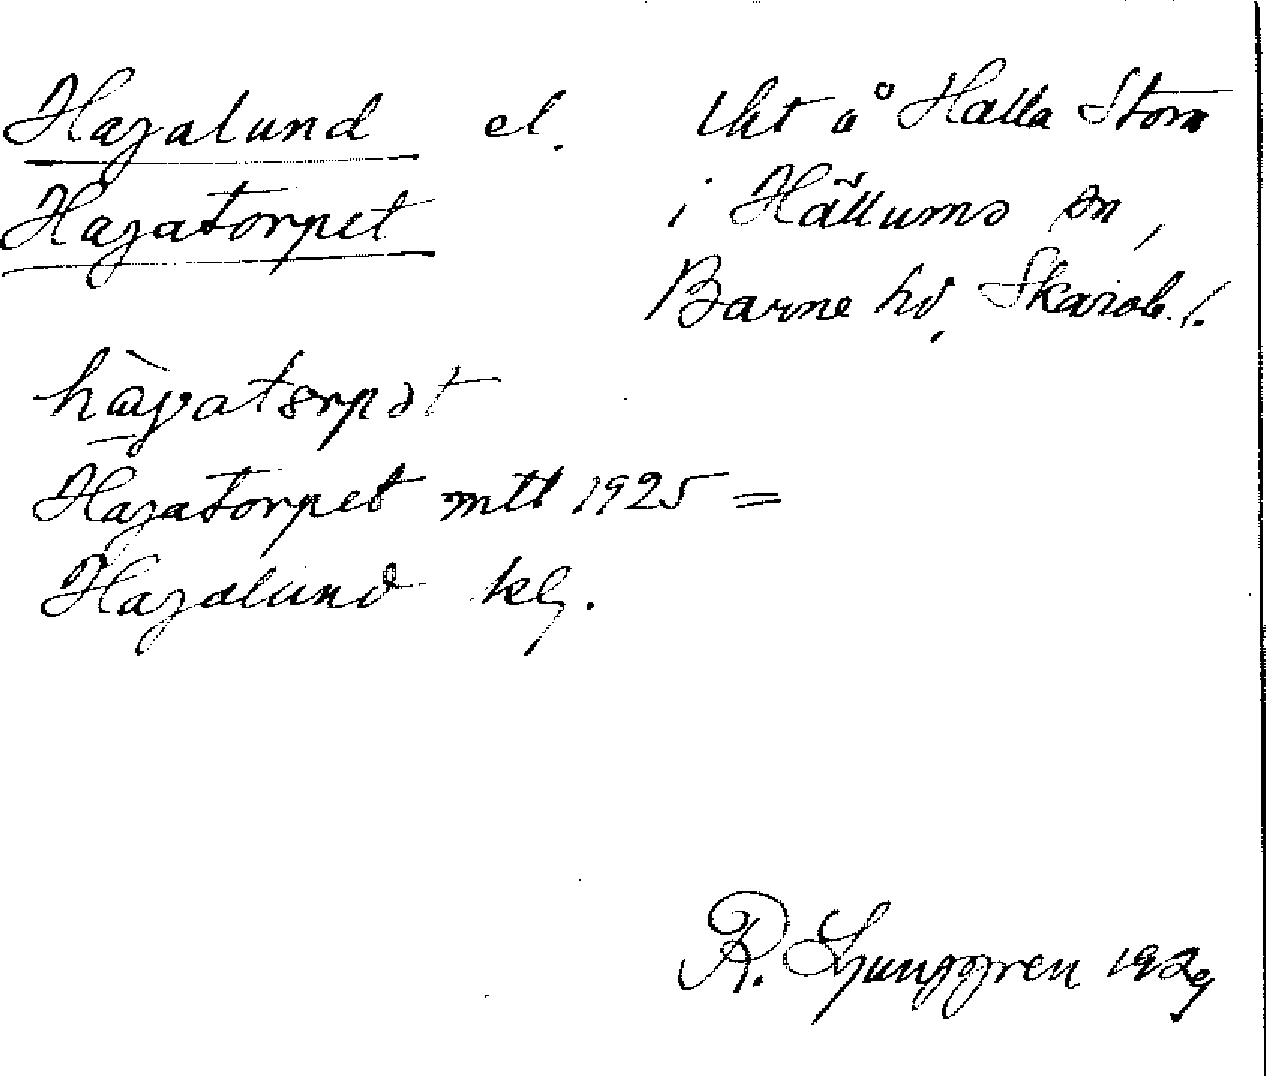 Hagalund el.
Hagatorpet
lht å Halla Storn
i Hällums sn,
Barne hd, Skarab. l.
hàgatorpət
Hagatorpet mtl 1925 =
Hagalund kg.
R. Ljunggren 1929